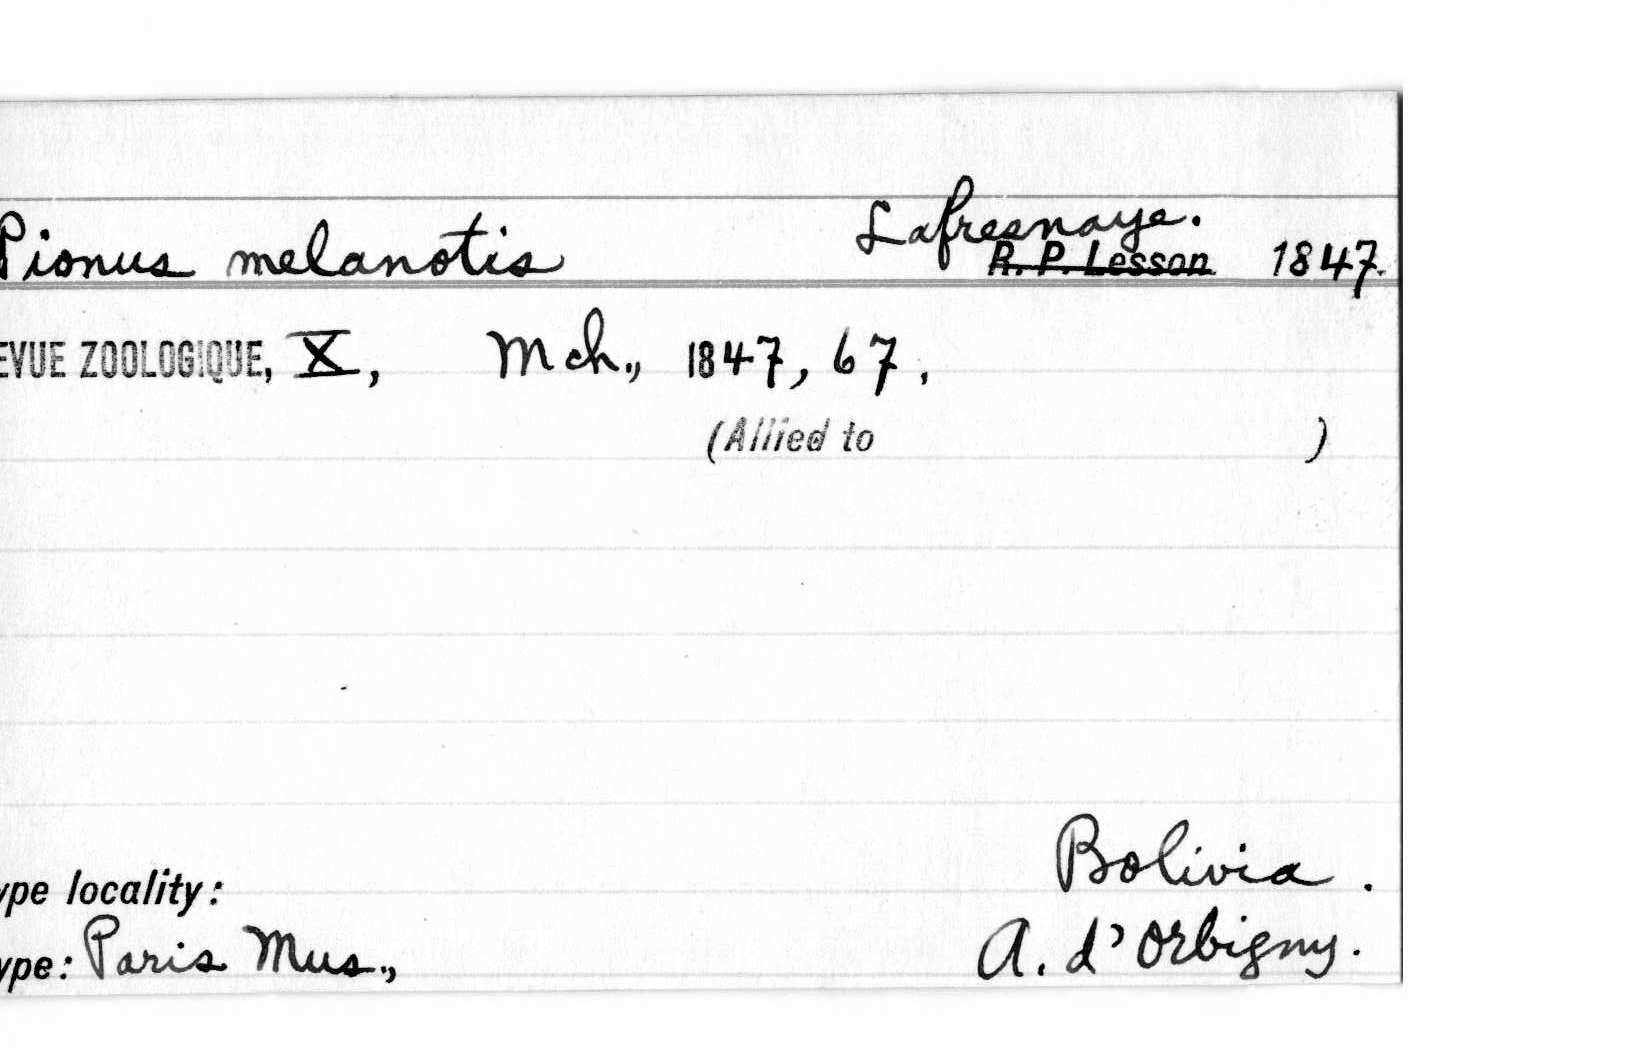 Pionus melanotis Lafresnaye.
R. P. Lesson 1847.
EVUE ZOOLOGIQUE, X, Mch., 1847, 67.
(Allied to )
ype locality: Bolivia.
ype: Paris Mus., A. d'Orbigny.